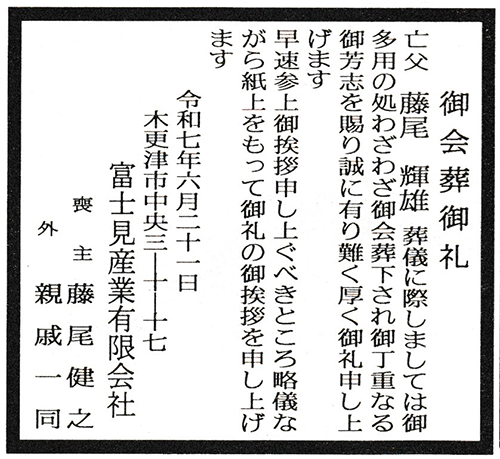 御会葬御礼
亡父　藤尾　輝雄　葬儀に際しましては御
多用の処わざわざ御会葬下され御丁重なる
御芳志を賜り誠に有り難く厚く御礼申し上
げます
早速参上御挨拶申し上ぐべきところ略儀な
がら紙上をもって御礼の御挨拶を申し上げ
ます
令和七年六月二十一日
木更津市中央三―十―十七
富士見産業有限会社
喪主　藤尾健之
外　親戚一同